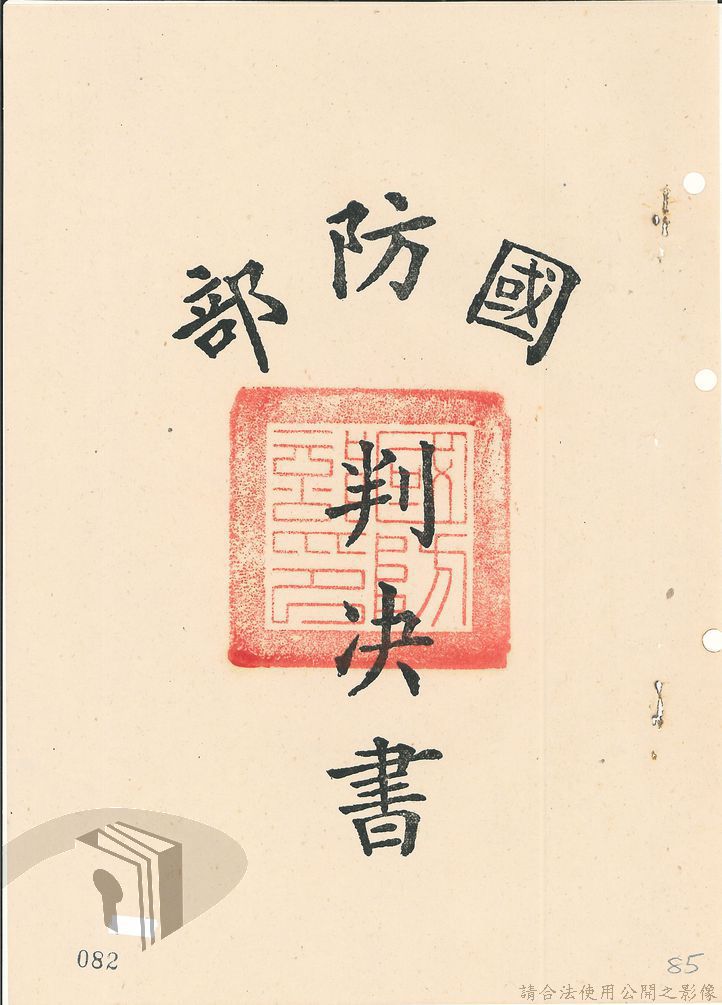 國防部
判決書
國防部印
082
85
請合法使用公開之影像